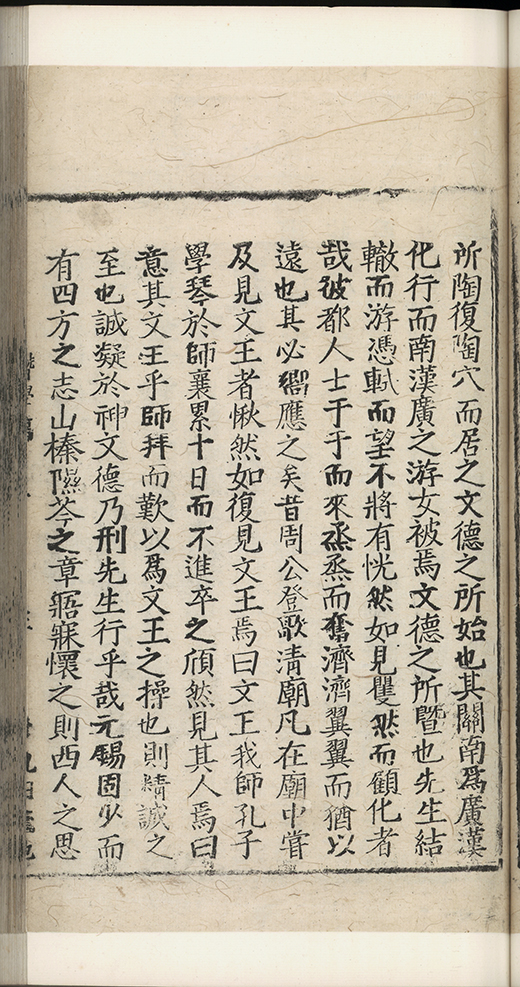 所陶復陶穴而居之文德之所始也其關南爲廣漢
化行而南漢廣之游女被焉文德之所曁也先生結
轍而游憑軾而望不將有恍然如見瞿然而顧化者
哉彼都人士于于而來烝烝而奮濟濟翼翼而猶以
遠也其必嚮應之矣昔周公登歌清廟凡在廟中嘗
及見文王者愀然如復見文王焉曰文王我師孔子
學琴於師襄累十日而不進卒之頎然見其人焉曰
意其文王乎師拜而歎以爲文王之操也則精誠之
至也誠凝於神文德乃刑先生行乎哉元錫固少而
有四方之志山榛隰苓之章寤寐懷之則西人之思